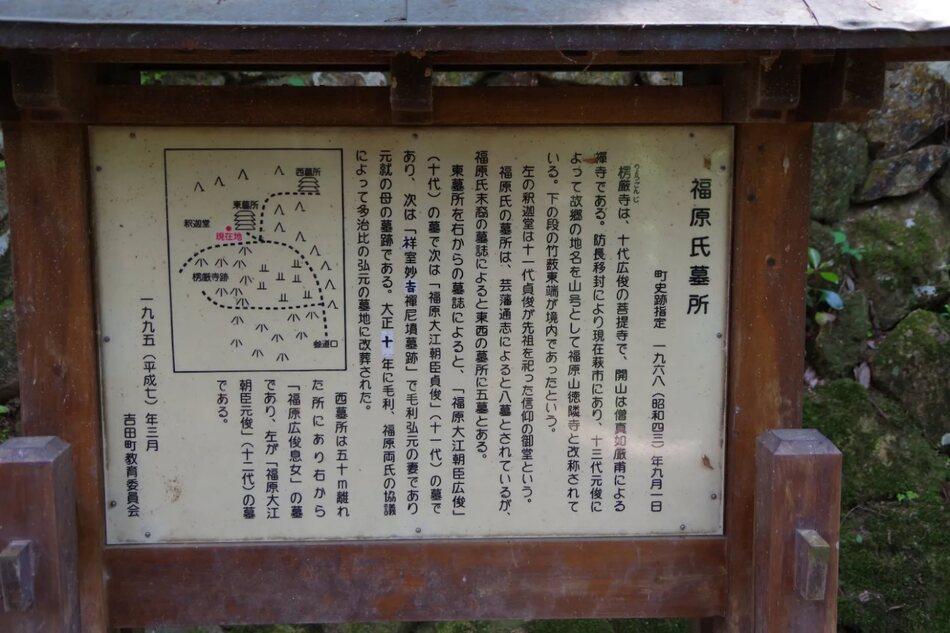 福原氏墓所
町史跡指定　一九六八（昭和四三）年九月一日
りょうごんじ
楞厳寺は、十代広俊の菩提寺で、開山は僧真如厳甫による
禅寺である。防長移封により現在萩市にあり、十三代元俊に
よって故郷の地名を山号として福原山徳隣寺と改称されて
いる。下の段の竹薮東端が境内であったという。
左の釈迦堂は十一代貞俊が先祖を祀った信仰の御堂という。
福原氏の墓所は、芸藩通志によると八墓とされているが、
福原氏末裔の墓誌によると東西の墓所に五墓とある。
東墓所を右からの墓誌によると、「福原大江朝臣広俊」
（十代）の墓で次は「福原大江朝臣貞俊」（十一代）の墓で
あり、次は「祥室妙吉禅尼墳墓跡」で毛利弘元の妻であり
元就の母の墓跡である。大正十年に毛利、福原両氏の協議
によって多治比の弘元の墓地に改葬された。
西墓所は五十ｍ離れ
た所にあり右から
「福原広俊息女」の墓
であり、左が「福原大江
朝臣元俊」（十二代）の墓
である。
一九九五（平成七）年三月
吉田町教育委員会
西墓所
東墓所
釈迦堂
現在地
楞厳寺跡
参道口